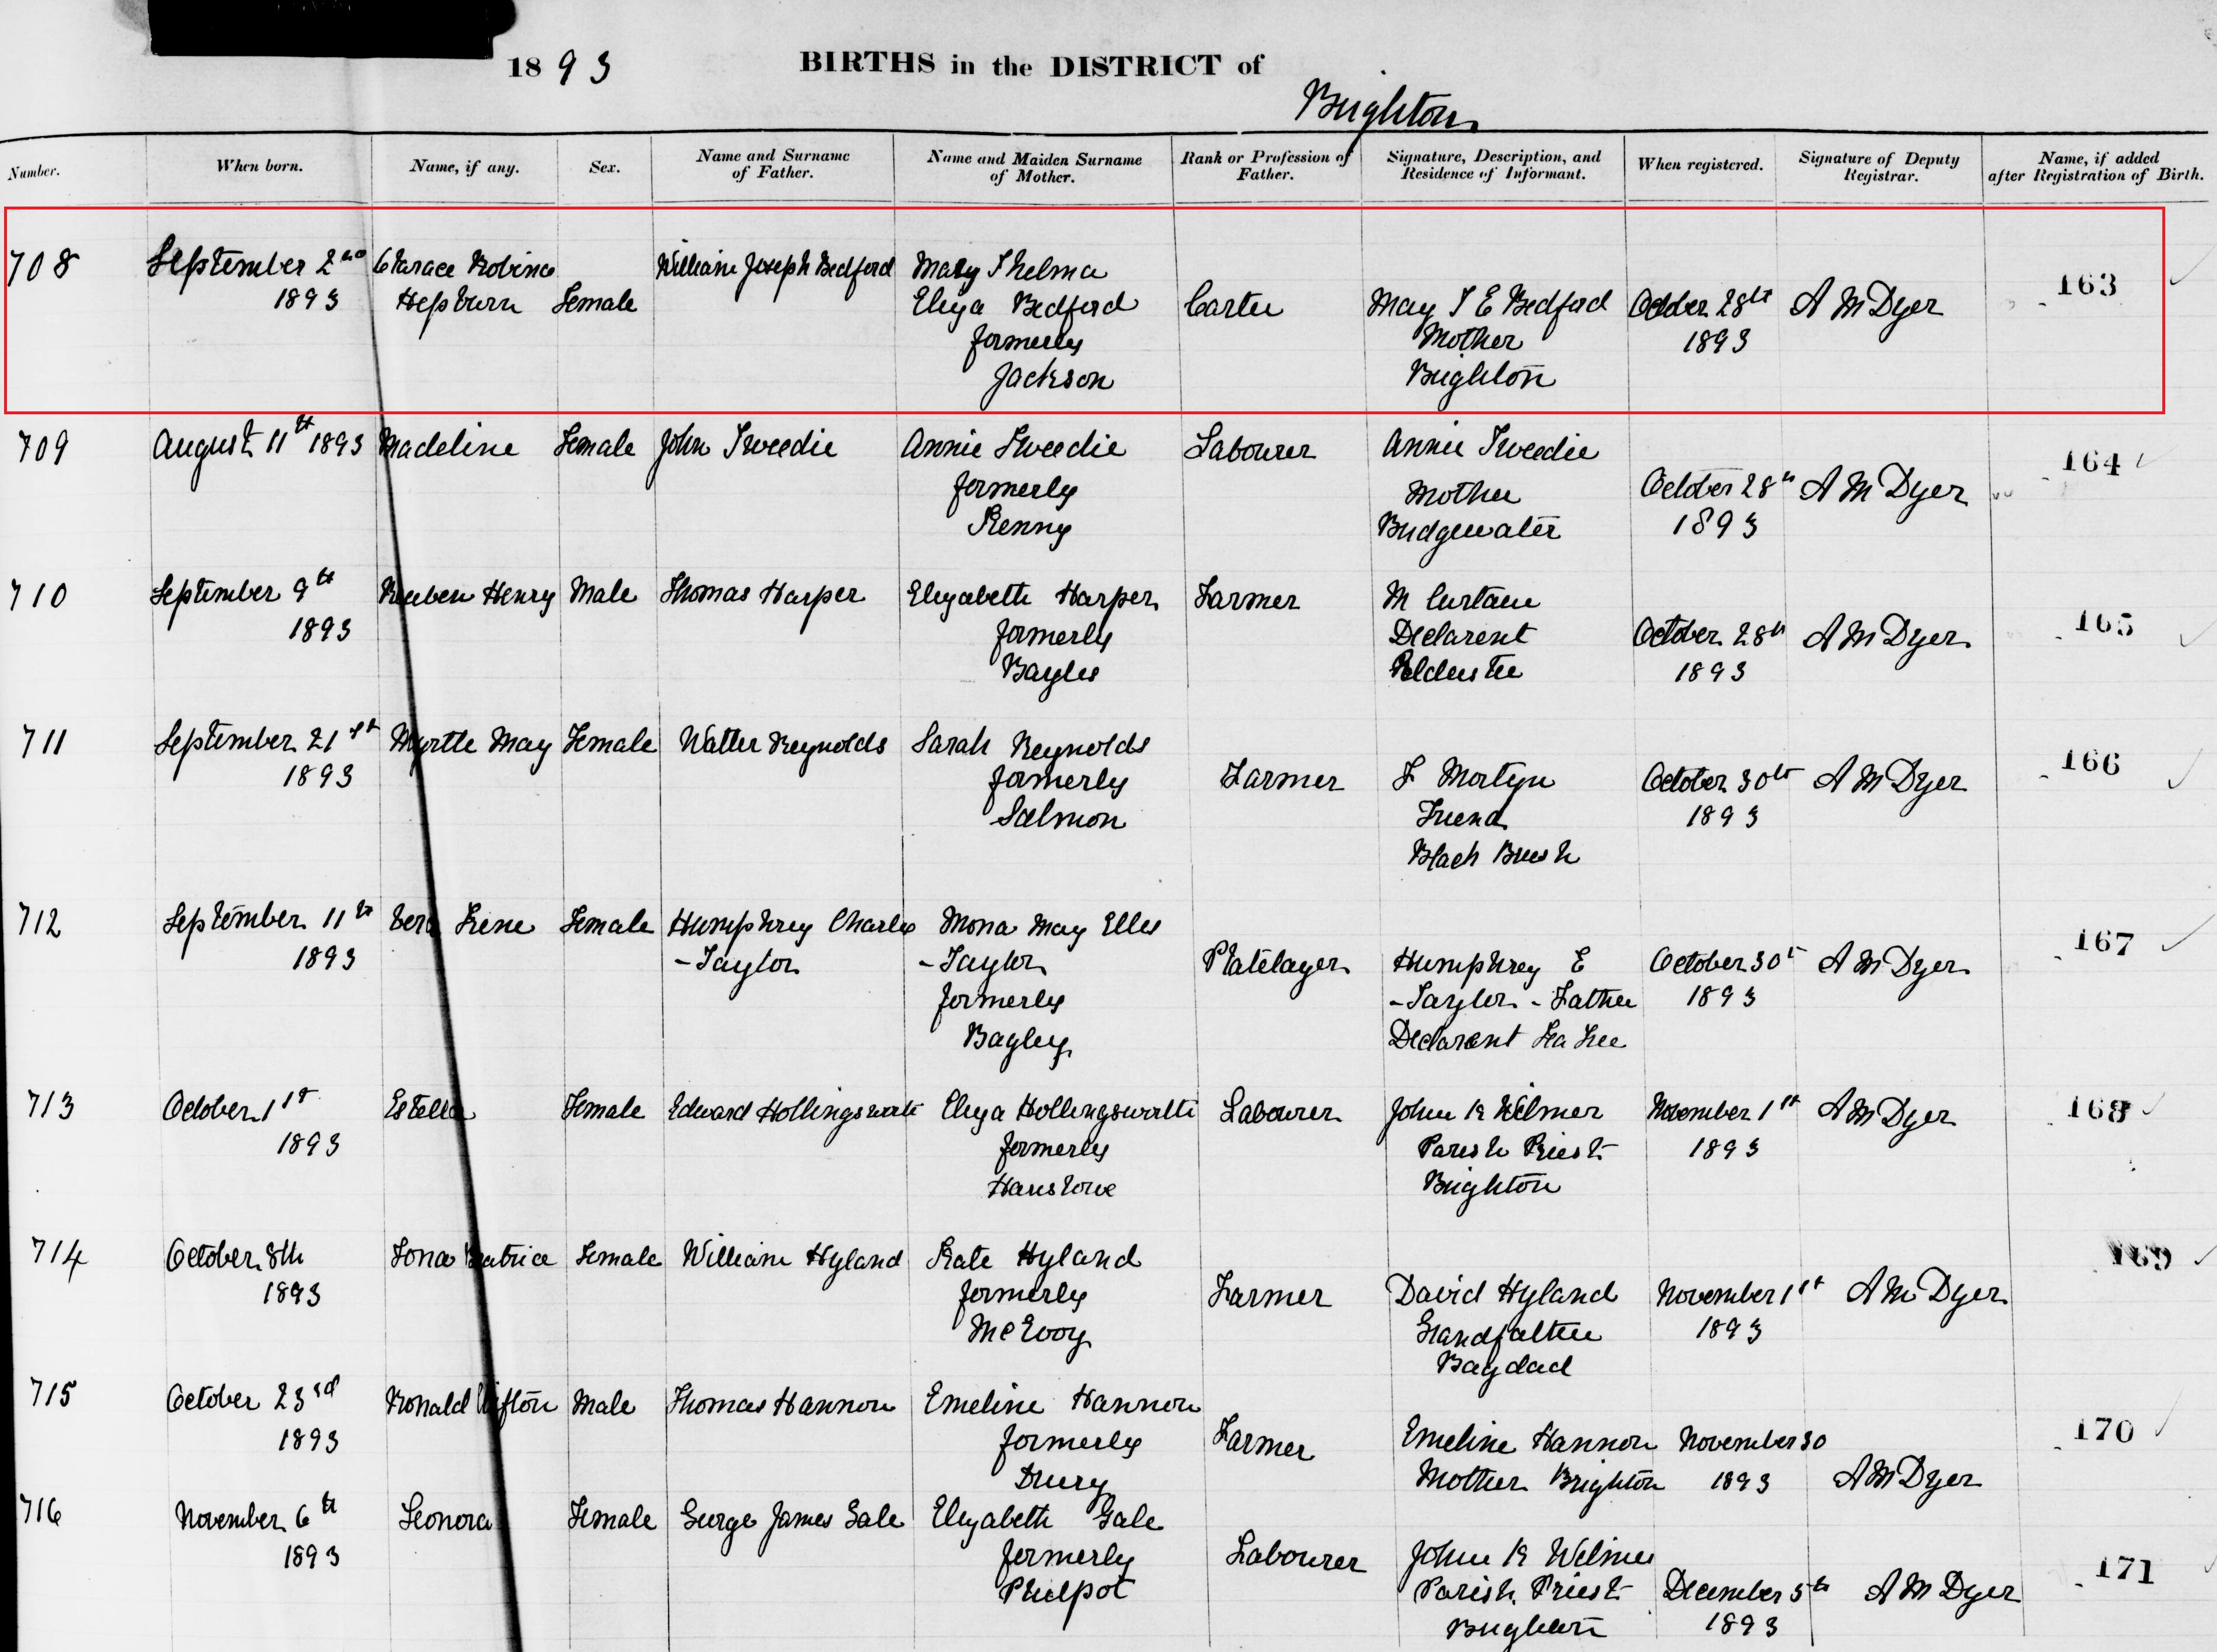 1893 BIRTHS in the DISTRICT of Brighton
Number. When born. Name, if any. Sex. Name and Surname of Father. Name and Maiden Surname of Mother. Rank or Profession of Father. Signature, Description, and Residence of Informant. When registered. Signature of Deputy Registrar. Name, if added after Registration of Birth.
708 September 2nd Robina William Joseph Bedford Mary Thelma 163
1893 Hepburn Female Eliza Bedford Carter May T E Bedford October 28th A M Dyer
formerly Mother 1893
Jackson Brighton
709 August 11th 1893 Madeline Female John Tweedie Annie Tweedie Labourer Annie Tweedie 164
formerly Mother October 28th A M Dyer
Kenny Bridgewater 1893
710 September 9th Reuben Henry Male Thomas Harper Elizabeth Harper Farmer M Curtain 165
1893 formerly Declarent October 28th A M Dyer
Bayles 1893
711 September 21st Myrtle May Female Walter Reynolds Sarah Reynolds 166
1893 formerly Farmer Martyn October 30th A M Dyer
Salmon Friend 1893
Black Brush
712 September 11th Vera Irene Female Humphrey Charles Mona May 167
1893 -Taylor -Taylor Platelayer Humphrey E October 30th A M Dyer
formerly -Taylor - Father 1893
Bagley Declarent Tea Tree
713 October 1st Estella Female Edward Hollingsworth Eliza Hollingsworth Labourer John K Wilmer November 1st A M Dyer 168
1893 formerly Parish Priest 1893
Brighton
714 October 8th Beatrice Female William Hyland Kate Hyland 169
1893 formerly Farmer David Hyland November 1st A M Dyer
McEvoy Grandfather 1893
Bagdad
715 October 23rd Ronald Clifton Male Thomas Hannon Emeline Hannon 170
1893 formerly Farmer Emeline Hannon November 30
Drury Mother Brighton 1893 A M Dyer
716 November 6th Leonora Female George James Gale Elizabeth Gale
1893 formerly Labourer John K Wilmer 171
Philpot Parish Priest December 5th A M Dyer
Brighton 1893